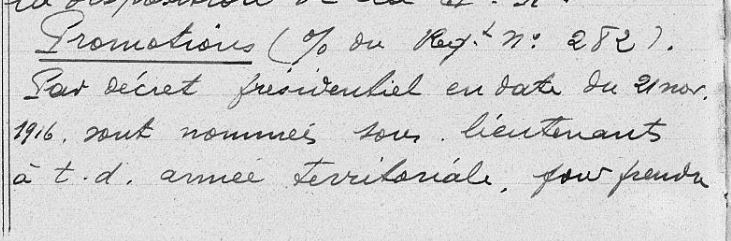 la disposition de la
Promotions (% du Regt n: 282).
Par décret présidentiel en date du 21 nov.
1916. sont nommés sous lieutenants
à t. d. armée territoriale, pour prendre